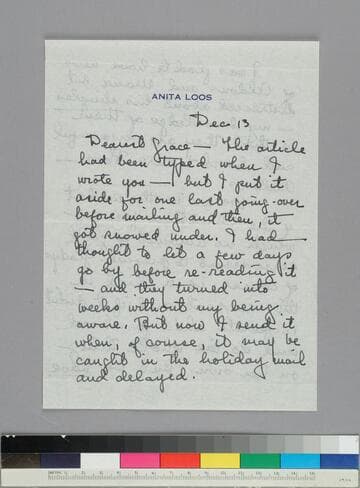 ANITA LOOS
Dec 13
Dearest Grace — The article
had been typed when I
wrote you — but I put it
aside for one last going-over
before mailing and then, it
got snowed under. I had
thought to let a few days
go by before re-reading it
— and they turned into
weeks without my being
aware. But now I send it
when, of course, it may be
caught in the holiday mail
and delayed.